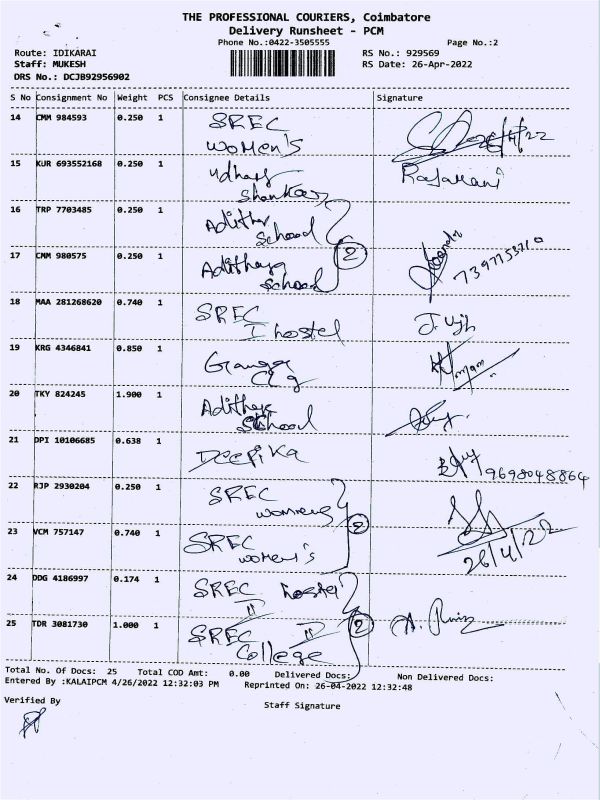 THE PROFESSIONAL COURIERS, Coimbatore
Delivery Runsheet - PCM
Phone No.:0422-3505555 Page No.:2
Route: IDIKARAI RS No.: 929569
Staff: MUKESH RS Date: 26-Apr-2022
DRS No.: DCJB92956902
S No Consignment No Weight PCS Consignee Details Signature
14 CMM 984593 0.250 1 SREC
women's
15 KUR 693552168 0.250 1 Rajamani
Shankar
16 TRP 7703485 0.250 1 Adithya
School
17 CMM 980575 0.250 1 Adithaya 2
School 7397153710
18 MAA 281268620 0.740 1 SREC
I hostel
19 KRG 4346841 0.850 1 Ganga
Clg
20 TKY 824245 1.900 1 Adithya
School
21 DPI 10106685 0.638 1 Deepika 9698048864
22 RJP 2930204 0.250 1 SREC
womens 2
23 VCM 757147 0.740 1 SREC
women's 26/4/22
24 DDG 4186997 0.174 1 SREC hostel
II
25 TDR 3081730 1.000 1 SREC II 2
College
Total No. Of Docs: 25 Total COD Amt: 0.00 Delivered Docs: Non Delivered Docs:
Entered By :KALAIPCM 4/26/2022 12:32:03 PM Reprinted On: 26-04-2022 12:32:48
Verified By Staff Signature